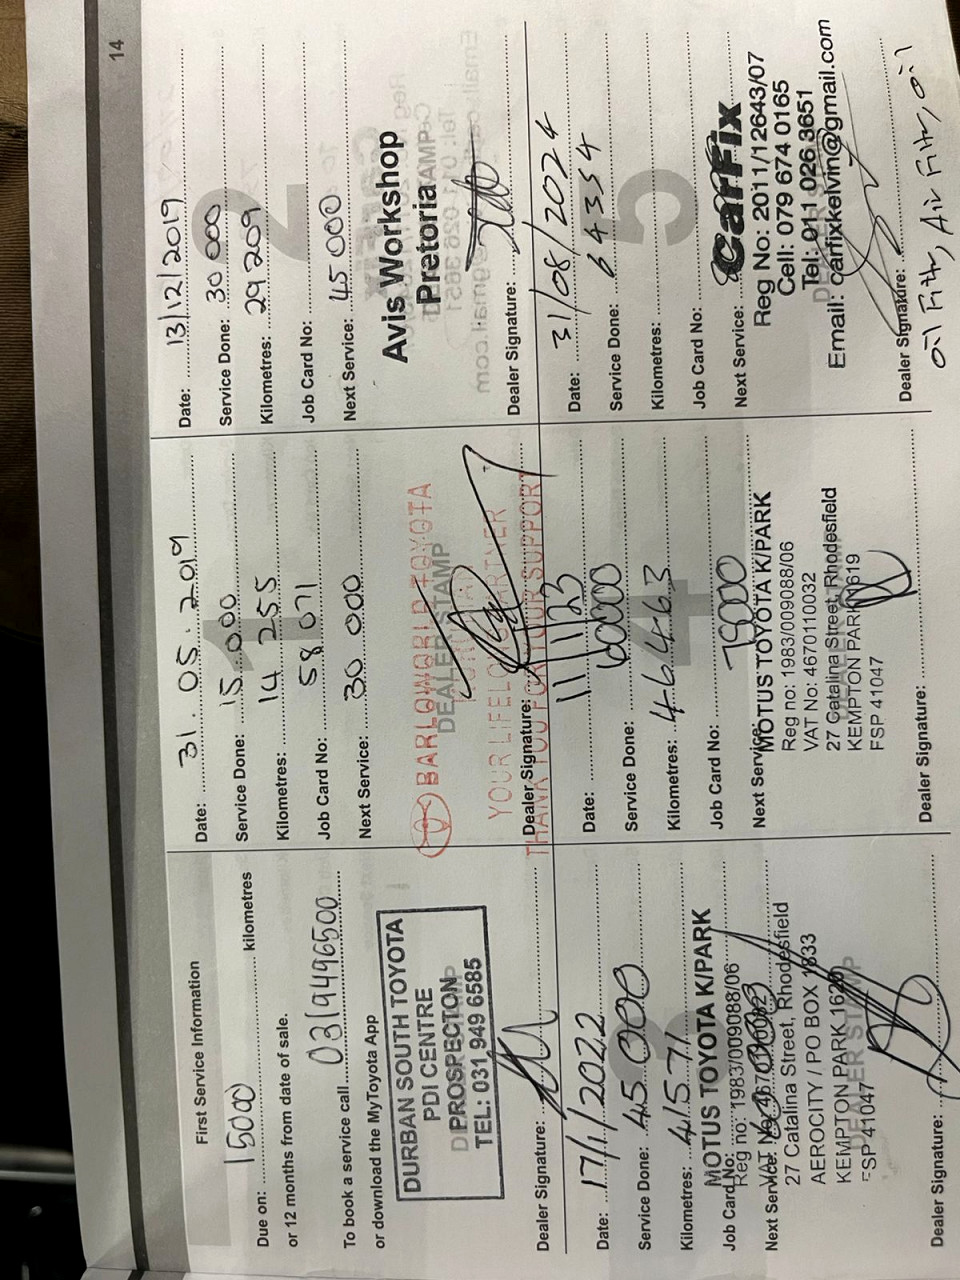 14
First Service Information
Due on: 15000 kilometres
or 12 months from date of sale.
To book a service call 031 9496500
or download the MyToyota App
DURBAN SOUTH TOYOTA
PDI CENTRE
PROSPECTON
TEL: 031 949 6585
Dealer Signature:
1
Date: 31. 05. 2019
Service Done: 15 000
Kilometres: 14 255
Job Card No: 58 071
Next Service: 30 000
DEALER STAMP
BARLOWORLD TOYOTA
YOUR LIFELONG PARTNER
THANK YOU FOR YOUR SUPPORT
Dealer Signature:
2
Date: 13/12/2019
Service Done: 30 000
Kilometres: 29 209
Job Card No:
Next Service: 45 000
Avis Workshop
Pretoria
Dealer Signature:
Date: 17/1/2022
Service Done: 45 000
Kilometres: 41571
Job Card No:
Next Service:
MOTUS TOYOTA K/PARK
Reg no: 1983/009088/06
VAT No:
27 Catalina Street, Rhodesfield
AEROCITY / PO BOX 1833
KEMPTON PARK 1620
FSP 41047
DEALER STAMP
Dealer Signature:
4
Date: 11/1/23
Service Done: 60000
Kilometres: 46463
Job Card No:
Next Service: 75000
MOTUS TOYOTA K/PARK
Reg no: 1983/009088/06
VAT No: 4670110032
27 Catalina Street, Rhodesfield
KEMPTON PARK 1619
FSP 41047
Dealer Signature:
5
Date: 31/08/2024
Service Done: 64354
Kilometres:
Job Card No:
Next Service:
CarFix
Reg No: 2011/12643/07
Cell: 079 674 0165
Tel: 011 026 3651
Email: carfixkelvin@gmail.com
Dealer Signature:
Oil Filtr, Air Filtr, Oil